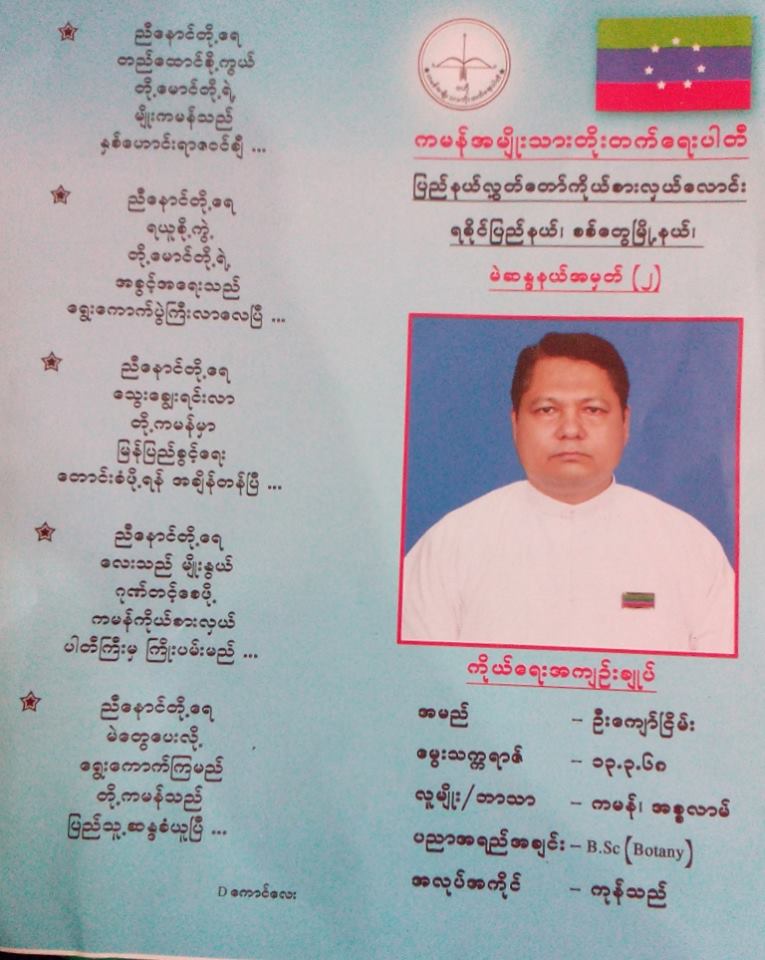 ညီနောင်တို့ရေ
တည်ထောင်စို့ကွယ်
တို့မောင်တို့ရဲ့
မျိုးကမန်သည်
နှစ်ဟောင်းရာဇဝင်စီ ...
ညီနောင်တို့ရေ
ရယူစို့ကွဲ့
တို့မောင်တို့ရဲ့
အခွင့်အရေးသည်
ရွေးကောက်ပွဲကြီးလာလေပြီ ...
ညီနောင်တို့ရေ
သွေးချွေးရင်းလာ
တို့ကမန်မှာ
မြန်ပြည်ခွင့်ရေး
တောင်းခံဖို့ရန် အချိန်တန်ပြီ ...
ညီနောင်တို့ရေ
လေးသည် မျိုးနွယ်
ဂုဏ်တင့်စေဖို့
ကမန်ကိုယ်စားလှယ်
ပါတီကြီးမှ ကြိုးပမ်းမည် ...
ညီနောင်တို့ရေ
မဲတွေပေးလို့
ရွေးကောက်ကြမည်
တို့ကမန်သည်
ပြည်သူ့ဆန္ဒခံယူပြီ ...
D ကောင်လေး
ကမန်အမျိုးသားတိုးတက်ရေးပါတီ
ပြည်နယ်လွှတ်တော်ကိုယ်စားလှယ်လောင်း
ရခိုင်ပြည်နယ်၊ စစ်တွေမြို့နယ်၊
မဲဆန္ဒနယ်အမှတ် (၂)
ကိုယ်ရေးအကျဉ်းချုပ်
အမည် – ဦးကျော်ငြိမ်း
မွေးသက္ကရာဇ် – ၁၃.၃.၆၈
လူမျိုး/ဘာသာ – ကမန်၊ အစ္စလာမ်
ပညာအရည်အချင်း – B.Sc (Botany)
အလုပ်အကိုင် – ကုန်သည်